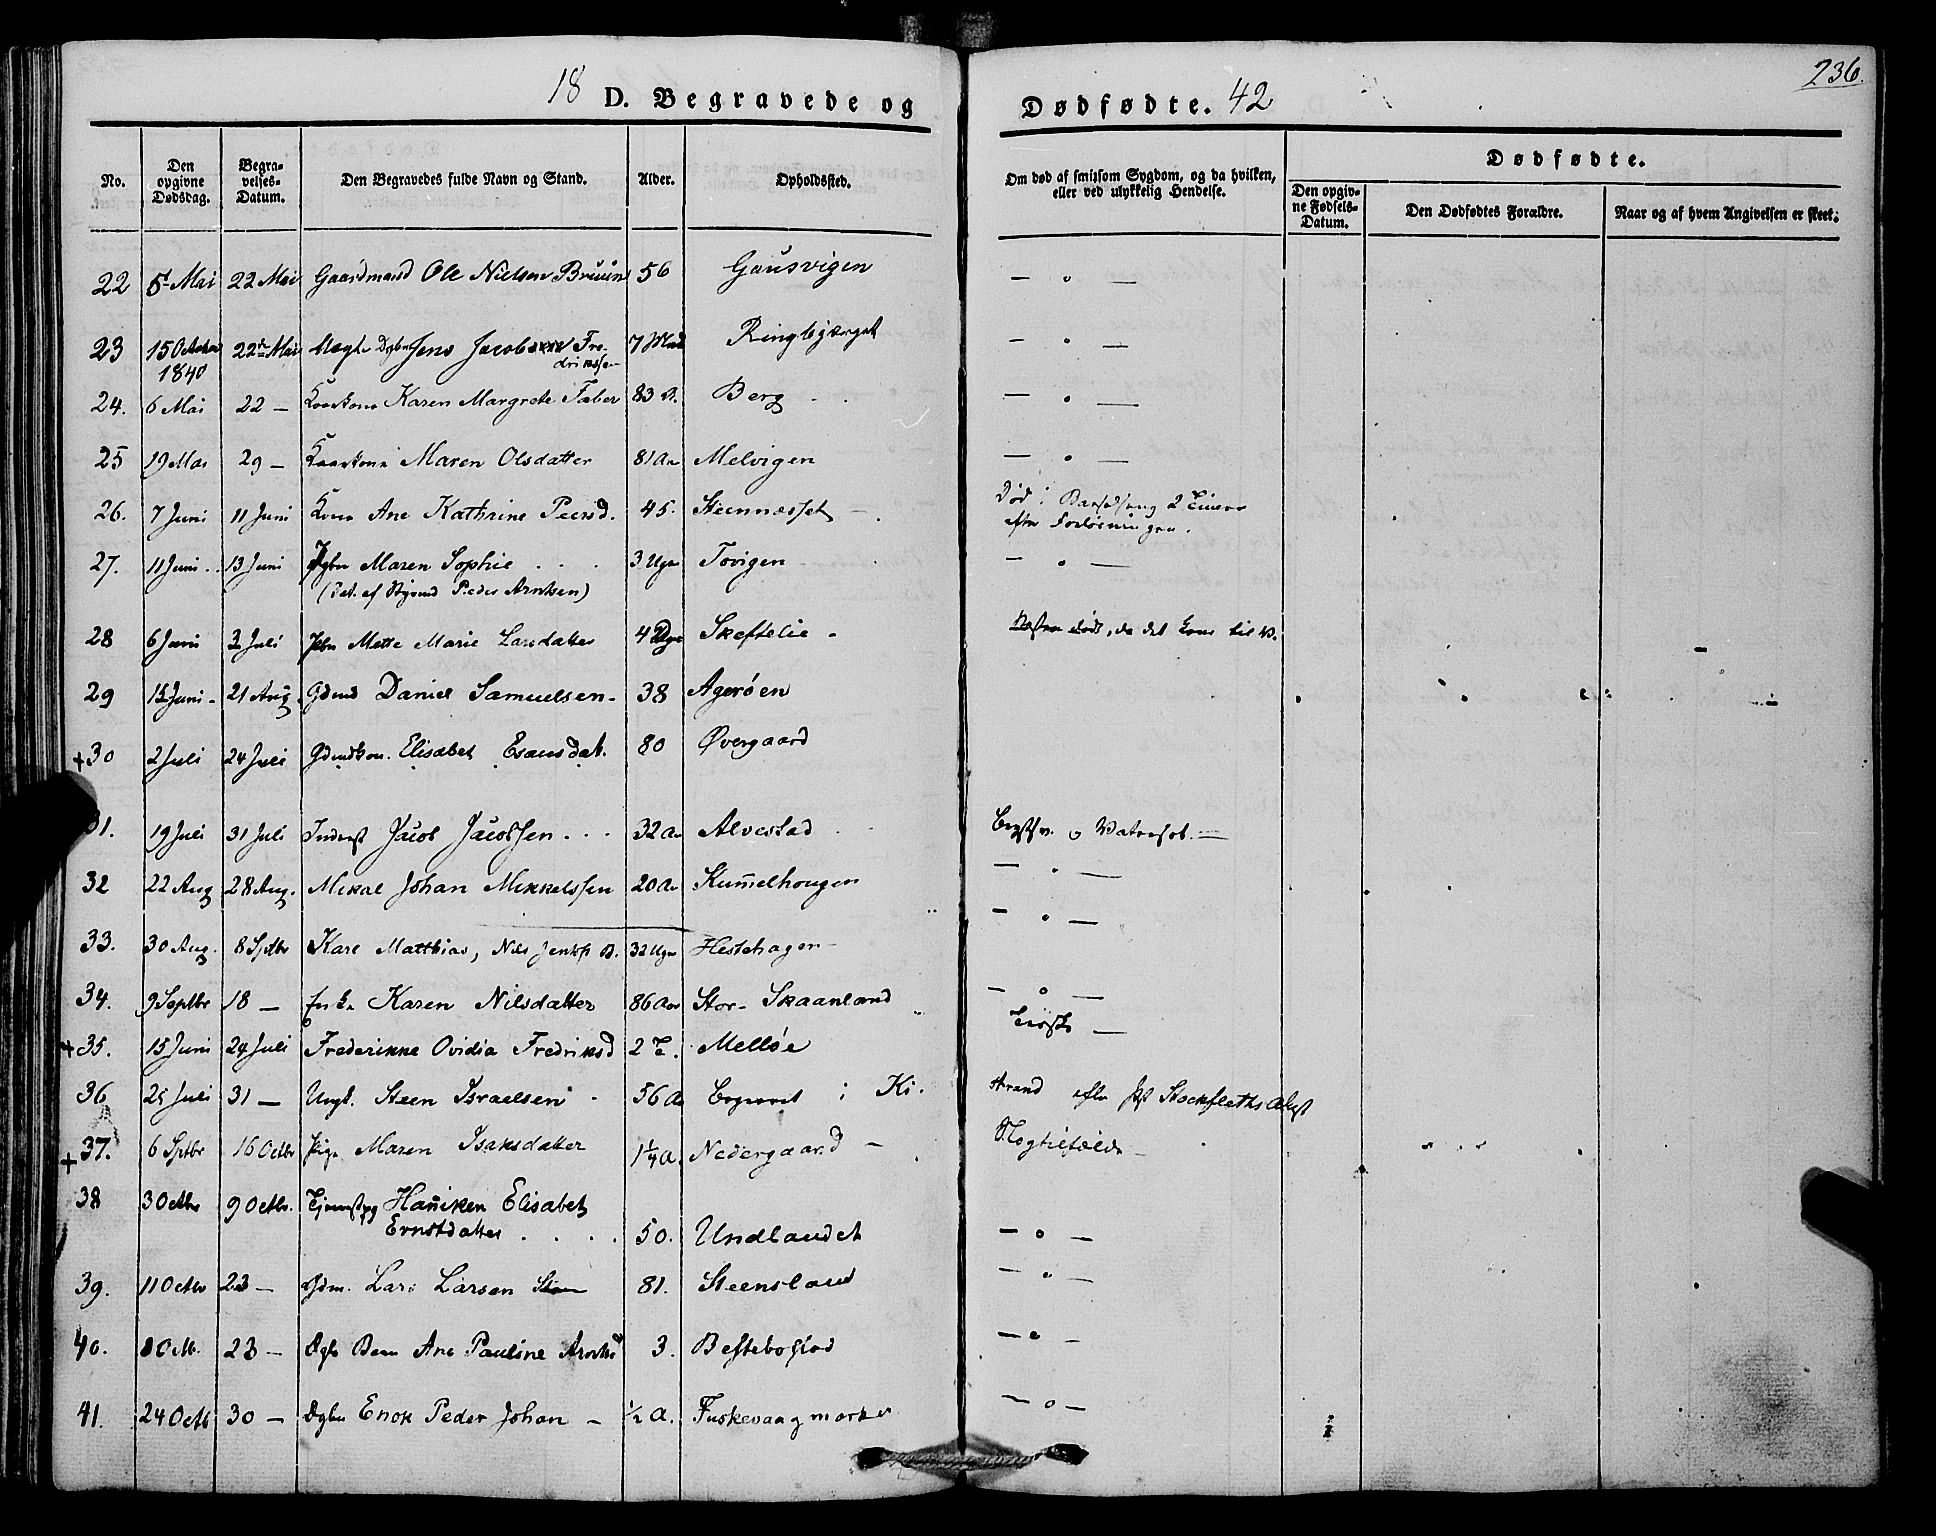 236.
18 D. Begravede og Dødfødte. 42
No.
Den opgivne Dødsdag.
Begravelses-Datum.
Den Begravedes fulde Navn og Stand.
Alder.
Opholdssted.
Om død af smitsom Sygdom, og da hvilken, eller ved ulykkelig Hendelse.
Dødfødte.
Den opgivne Fødsels-Datum.
Den Dødfødtes Forældre.
Naar og af hvem Angivelsen er skeet.
22 5t Mai 22 Mai Gaardmand Ole Nielsen Bruun 56 Gausvigen — " —
23 15 October 1840 22de Mai Dgbn Jens Jacob Fredrikssen 7 Ringbjerget — " —
24. 6 Mai 22 — Karen Margrete Faber 83 Berg — " —
25 19 Mai 29 — Maren Olsdatter 81 Aar Melvigen — " —
26. 7 Juni 11 Juni Kone Ane Kathrine Peersd. 45. Steennæsset Død i Barselseng 2 Timer
efter Forløsningen.
27. 11 Juni 13 Juni Pgbn Maren Sophie 3 Uger Tovigen — " —
(Dat. af Peder Arntsen)
28 6 Juni 3 Juli Pbn Mette Marie Larsdatter 4 Uger Skeftelie Næsten død, da det kom til V.
29 15 Juni 21 Aug Gdmd Daniel Samuelsen 38 Agerøen
+30 2 Juli 24 Juli Gdmdkon. Elisabet Esausdat. 80 Øvergaard
31. 19 Juli 31 Juli Inderst Jacob Jacobsen 32 Aar Alvestad Brystsv. o Vatersot. —
32 22 Aug 28 Aug. Mikal Johan Mikkelssen 20 Aar Kummelhougen — " —
33. 30 Aug. 8 Septbr Karl Matthias, Nils B. 32 Uger Hestehagen — " —
34. 9 Septbr 18 — Enke Karen Nilsdatter 86 Aar Stor-Skaanland — " —
+35. 15 Juni 24 Juli Frederikke Ovidia Fredriksd 2 T. Melløe Trøske —
36 25 Juli 31 — Ungk. Steen Israelsen 56 A Begravet i Ki. strand efter Stockfleths
+37. 6 Sptbr 16 Octbr Pige Maren Isaksdatter 1¼ A. Nedergaard
38 3 Octbr 9 Octbr. Tjenestpg Hanniken Elisabet
Ernstdatter 50. Undlandet — " —
39. 11 Octbr 23 — Gdm. Lars Larsen 81. Steensland — " —
40. 23 — Dgbn Ane Pauline Arntsd 3. Beftebostad — " —
41. 24 Octb 30 — Dgbn Enok Peder Johan — ½ A. Fuskevaagmarken — " —